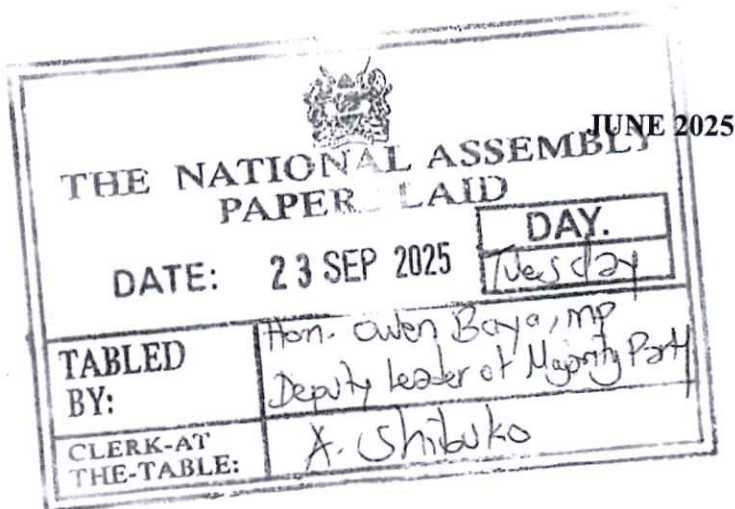 JUNE 2025
THE NATIONAL ASSEMBLY
PAPERS LAID
DATE: 23 SEP 2025
DAY.
Tuesday
TABLED BY:
Hon. Owen Baya, MP
Deputy Leader of Majority Party
CLERK-AT THE-TABLE:
A. Shibuko